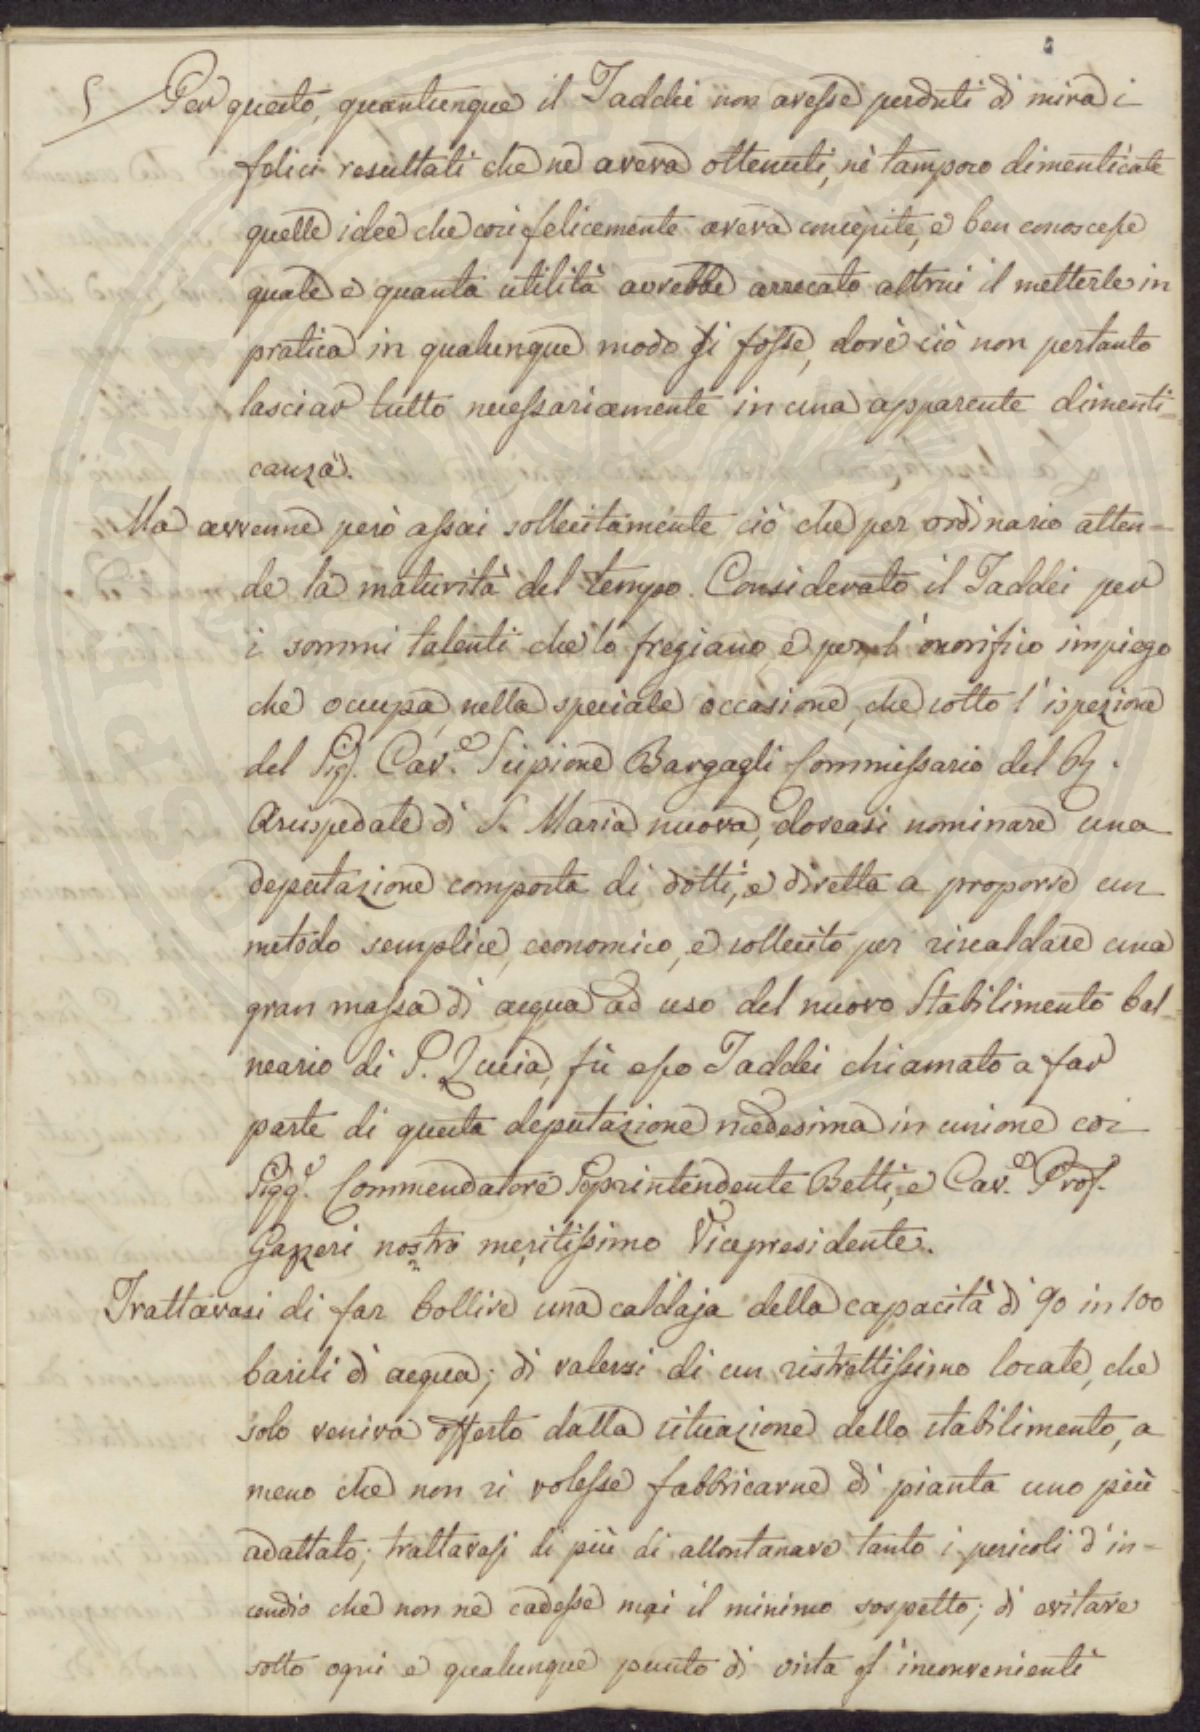 Per questo, quantunque il Taddei non avesse perduti di mira i
felici resultati che ne aveva ottenuti, nè tampoco dimenticate
quelle idee che così felicemente aveva concepite, e ben conoscesse
quale e quanta utilità avrebbe arrecato altrui il metterle in
pratica in qualunque modo si fosse, dovè ciò non pertanto
lasciar tutto necessariamente in una apparente dimenti-
canza.
Ma avvenne però assai sollecitamente ciò che per ordinario atten-
de la maturità del tempo. Considerato il Taddei per
i sommi talenti che lo fregiano, e per l'onorifico impiego
che occupa, nella speciale occasione, che sotto l'ispezione
del Sig. Cav.e Scipione Bargagli Commissario del R.
Arcispedale di S. Maria nuova, doveasi nominare una
deputazione composta di dotti, e diretta a proporre un
metodo semplice, economico, e sollecito per riscaldare una
gran massa di acqua ad uso del nuovo Stabilimento bal-
neario di S. Lucia, fù esso Taddei chiamato a far
parte di questa deputazione medesima in unione coi
Sigg.i Commendatore Soprintendente Betti, e Cav.e Prof.
Gazzeri nostro meritissimo Vicepresidente.
Trattavasi di far bollire una caldaja della capacità di 90 in 100
barili di acqua; di valersi di un ristrettissimo locale, che
solo veniva offerto dalla situazione dello stabilimento, a
meno che non si volesse fabbricarne di pianta uno più
adattato; trattavasi di più di allontanare tanto i pericoli d'in-
cendio che non ne cadesse mai il minimo sospetto; di evitare
sotto ogni e qualunque punto di vista gl'inconvenienti